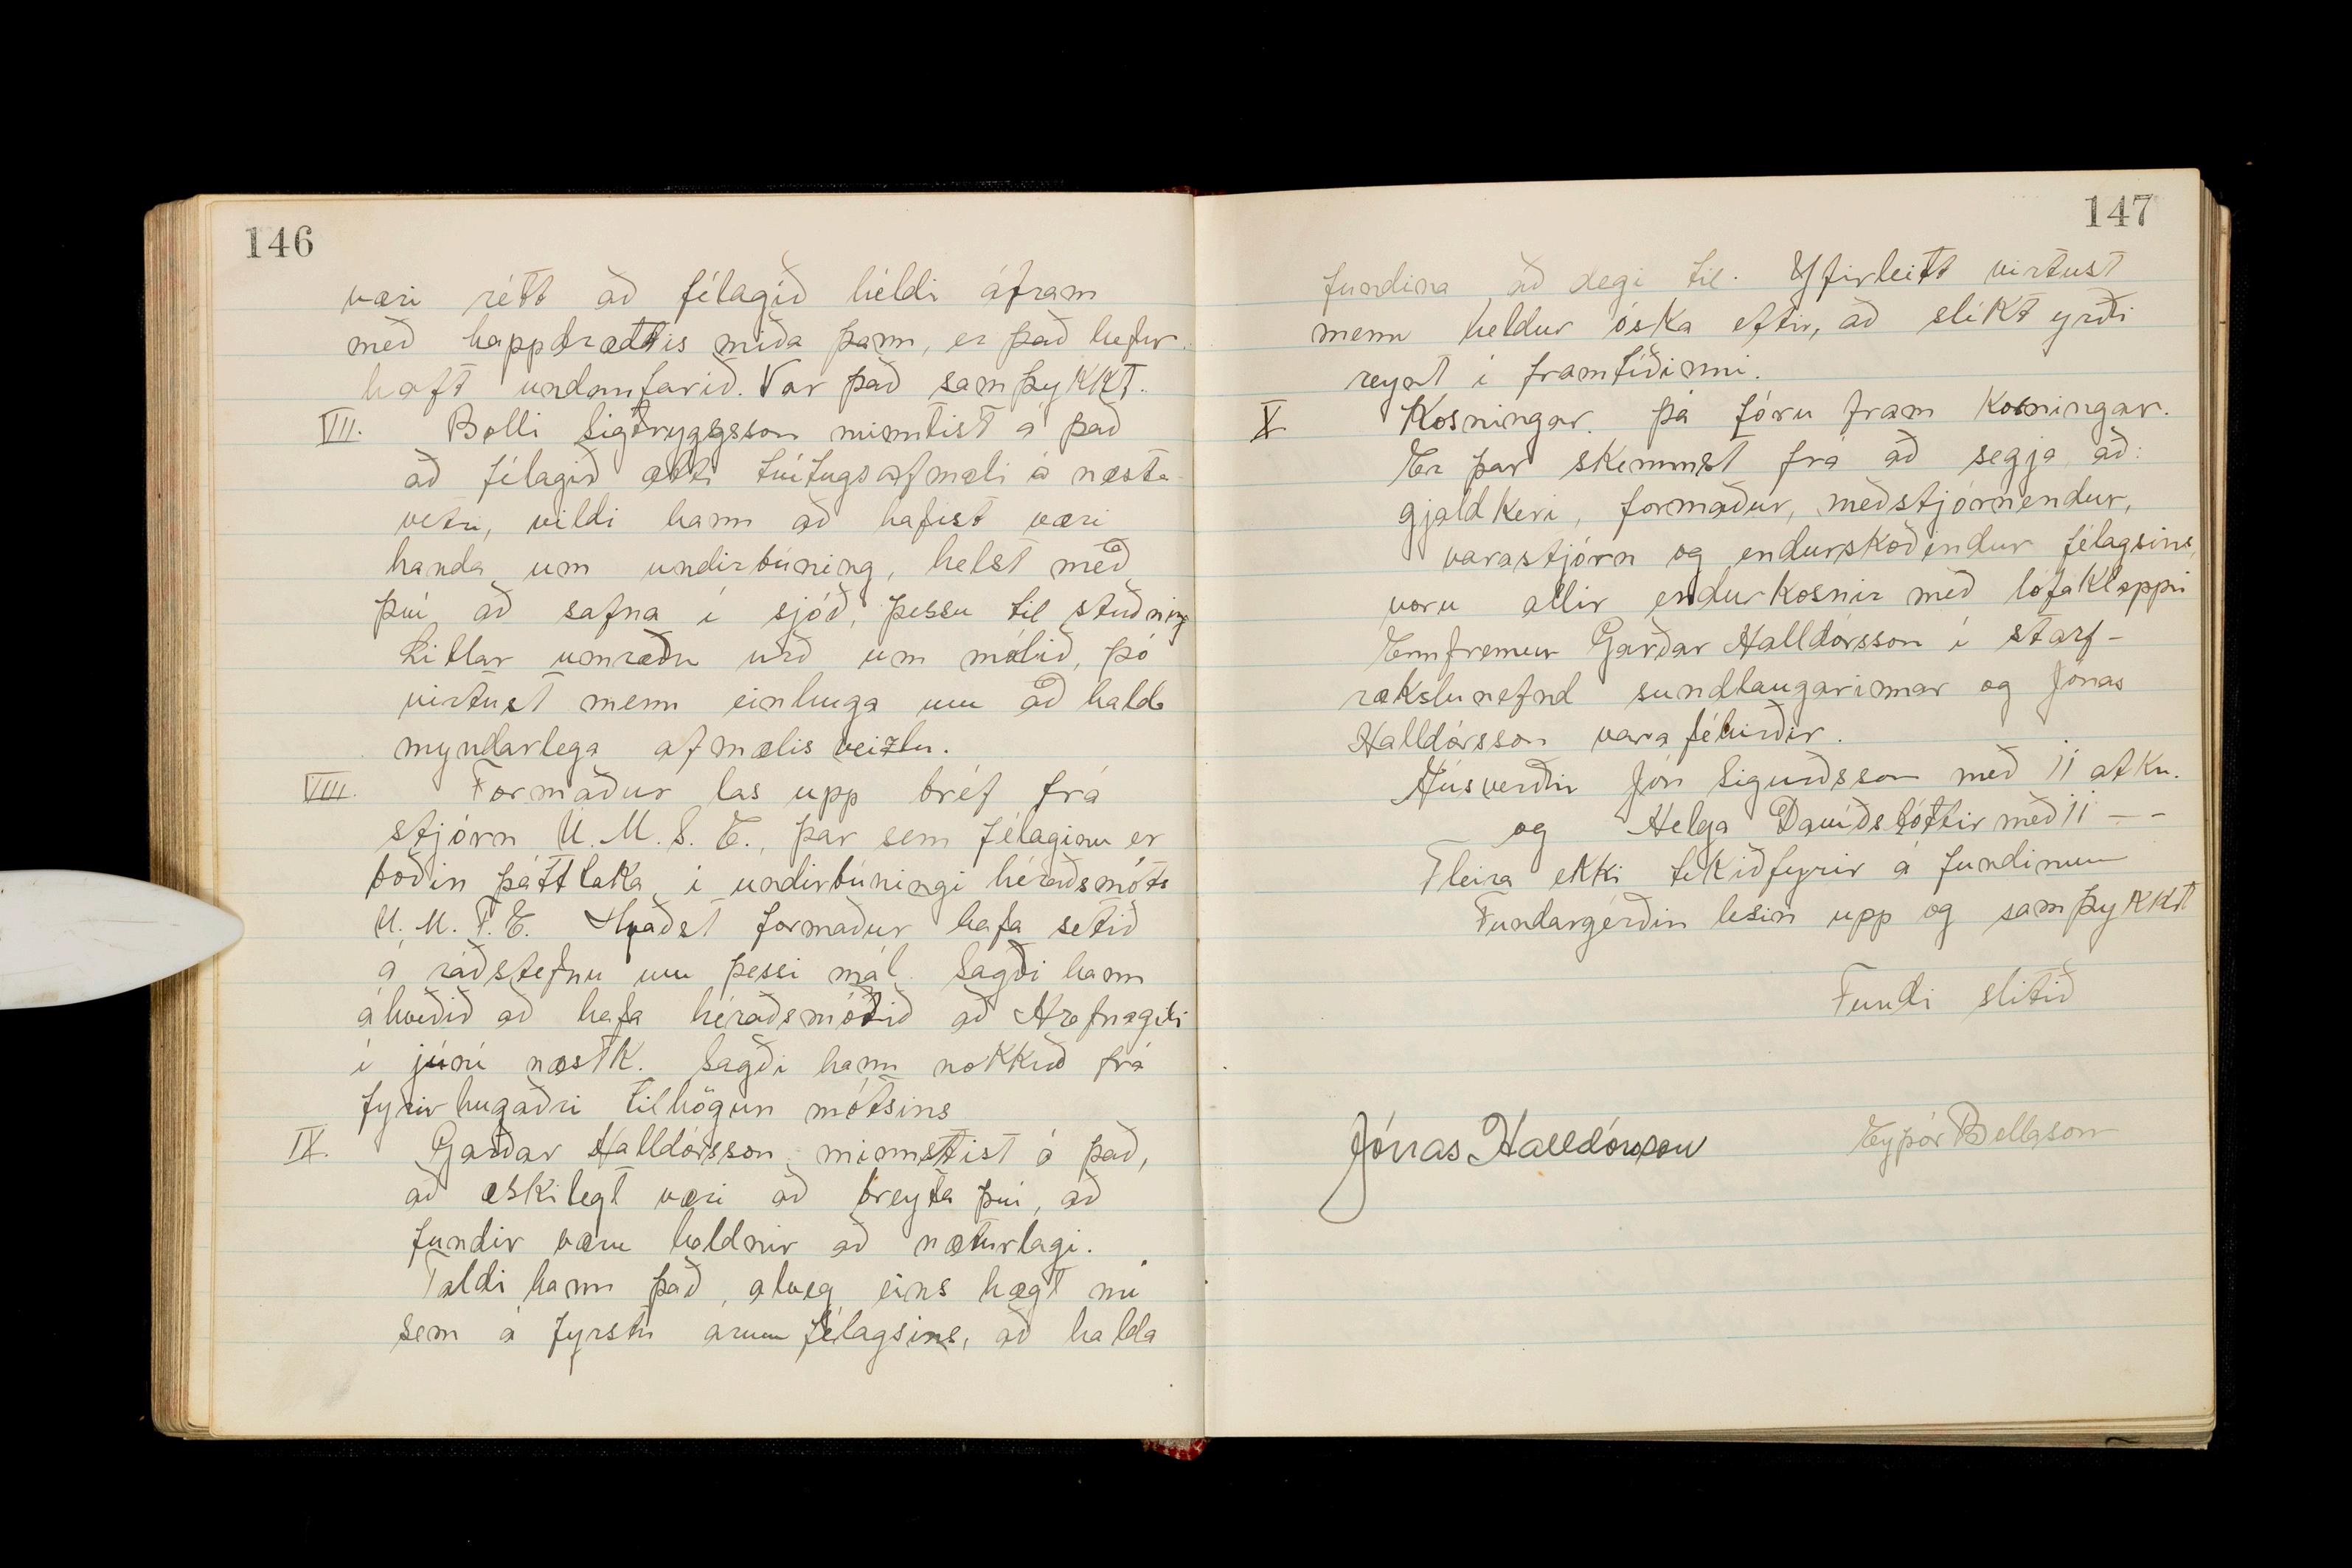 146
væri rétt að félagið héldi áfram
með happdrættis miða þann, er það hefur
haft undanfarið. Var það samþykkt.
VII. Bolli Sigtryggsson minntist á það
að félagið ætti tuítugsafmæli á næsta
vetri, vildi hann að hafist væri
handa um undirbúning, helst með
því að safna í sjóð, þessu til stuðning
Litlar umræður urð um málið, þó
virtust menn einhuga um að halda
myndarlega afmælis veizlu.
VIII. Formaður las upp bréf frá
stjórn U. M. S. E., þar sem félaginu er
boðin þátttaka í undirbúningi héraðsmóts
U. M. F. E. Kvaðst formaður hafa setið
á ráðstefnu um þessi mál. Sagði hann
ákveðið að hafa héraðsmótið að Hrafnagili
í júní næstk. Sagði hann nokkuð frá
fyrirhugaðri tilhögun mótsins
IX. Garðar Halldórsson minnstist á það,
að æskilegt væri að breyta því, að
fundir væru haldnir að næturlagi.
Taldi hann það, alveg eins hægt nú
sem á fyrstu árum félagsins, að halda
147
fundina að degi til. Yfirleitt virtust
menn heldur óska eftir, að slíkt yrði
reynt í framtíðinni.
X Kosningar. Þá fóru fram kosningar.
Er þar skemmst frá að segja að:
gjaldkeri, formaður, meðstjórnendur,
varastjórn og endurskoðendur félagsins,
voru allir endurkosnir með lófaklappi
Ennfremur Garðar Halldórsson í starf-
rækslunefnd sundlaugarinnar og Jónas
Halldórsson vara féhirðir.
Húsverðir Jón Sigurðsson með 11 atkv.
og Helga Davíðsdóttir með 11 – –
Fleira ekki tekið fyrir á fundinum
Fundargerðin lesin upp og samþykkt
Fundi slitið
Jónas Halldórsson Eyþór Bollason